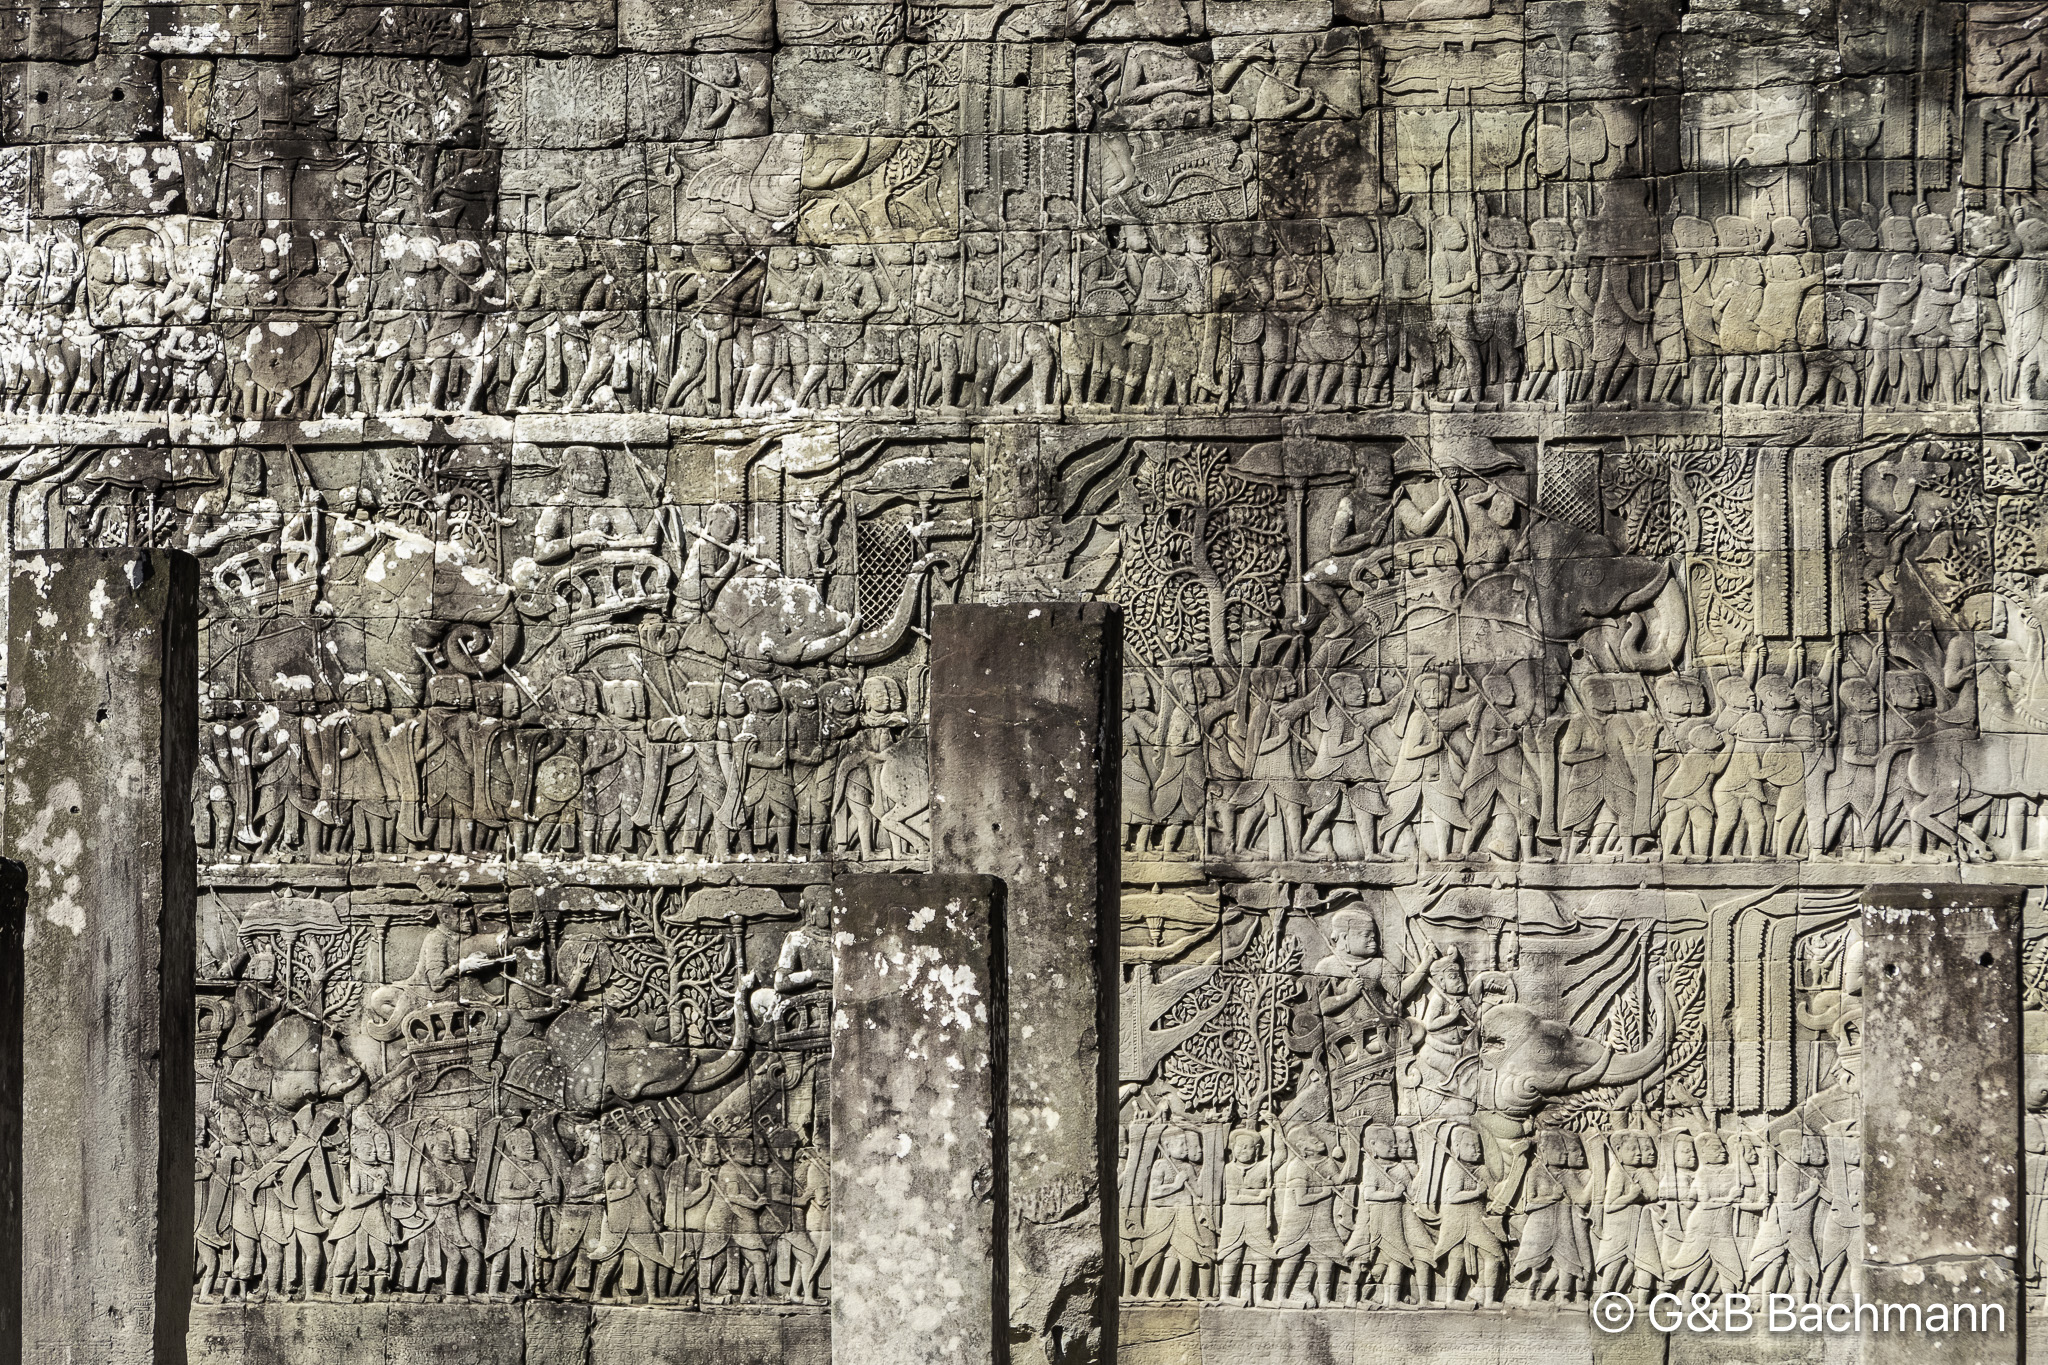 © G&B Bachmann